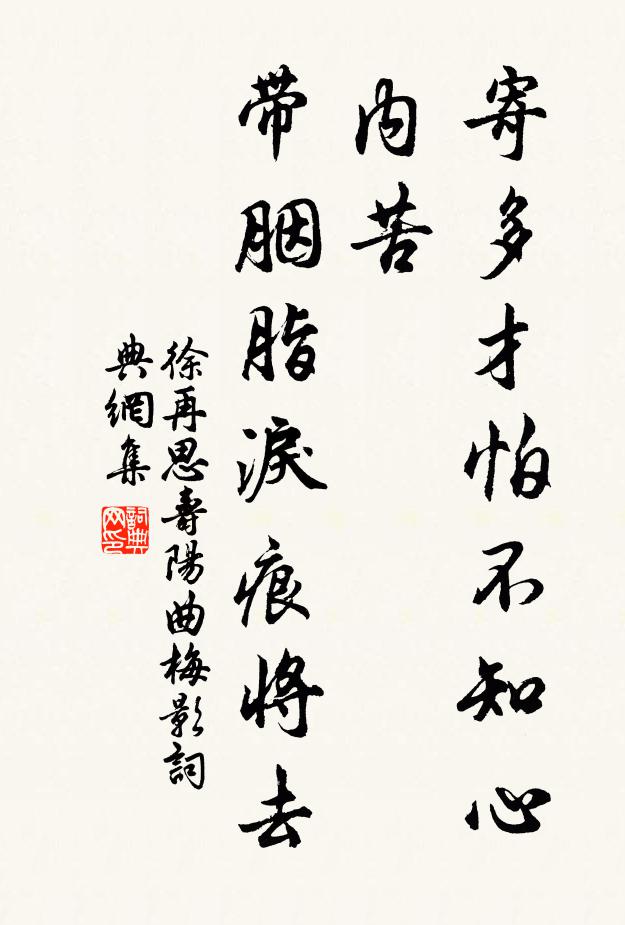 寄多才怕不知心
内苦
带胭脂淚痕將去
徐再思壽陽曲梅影詞
典網集
詞典
网印